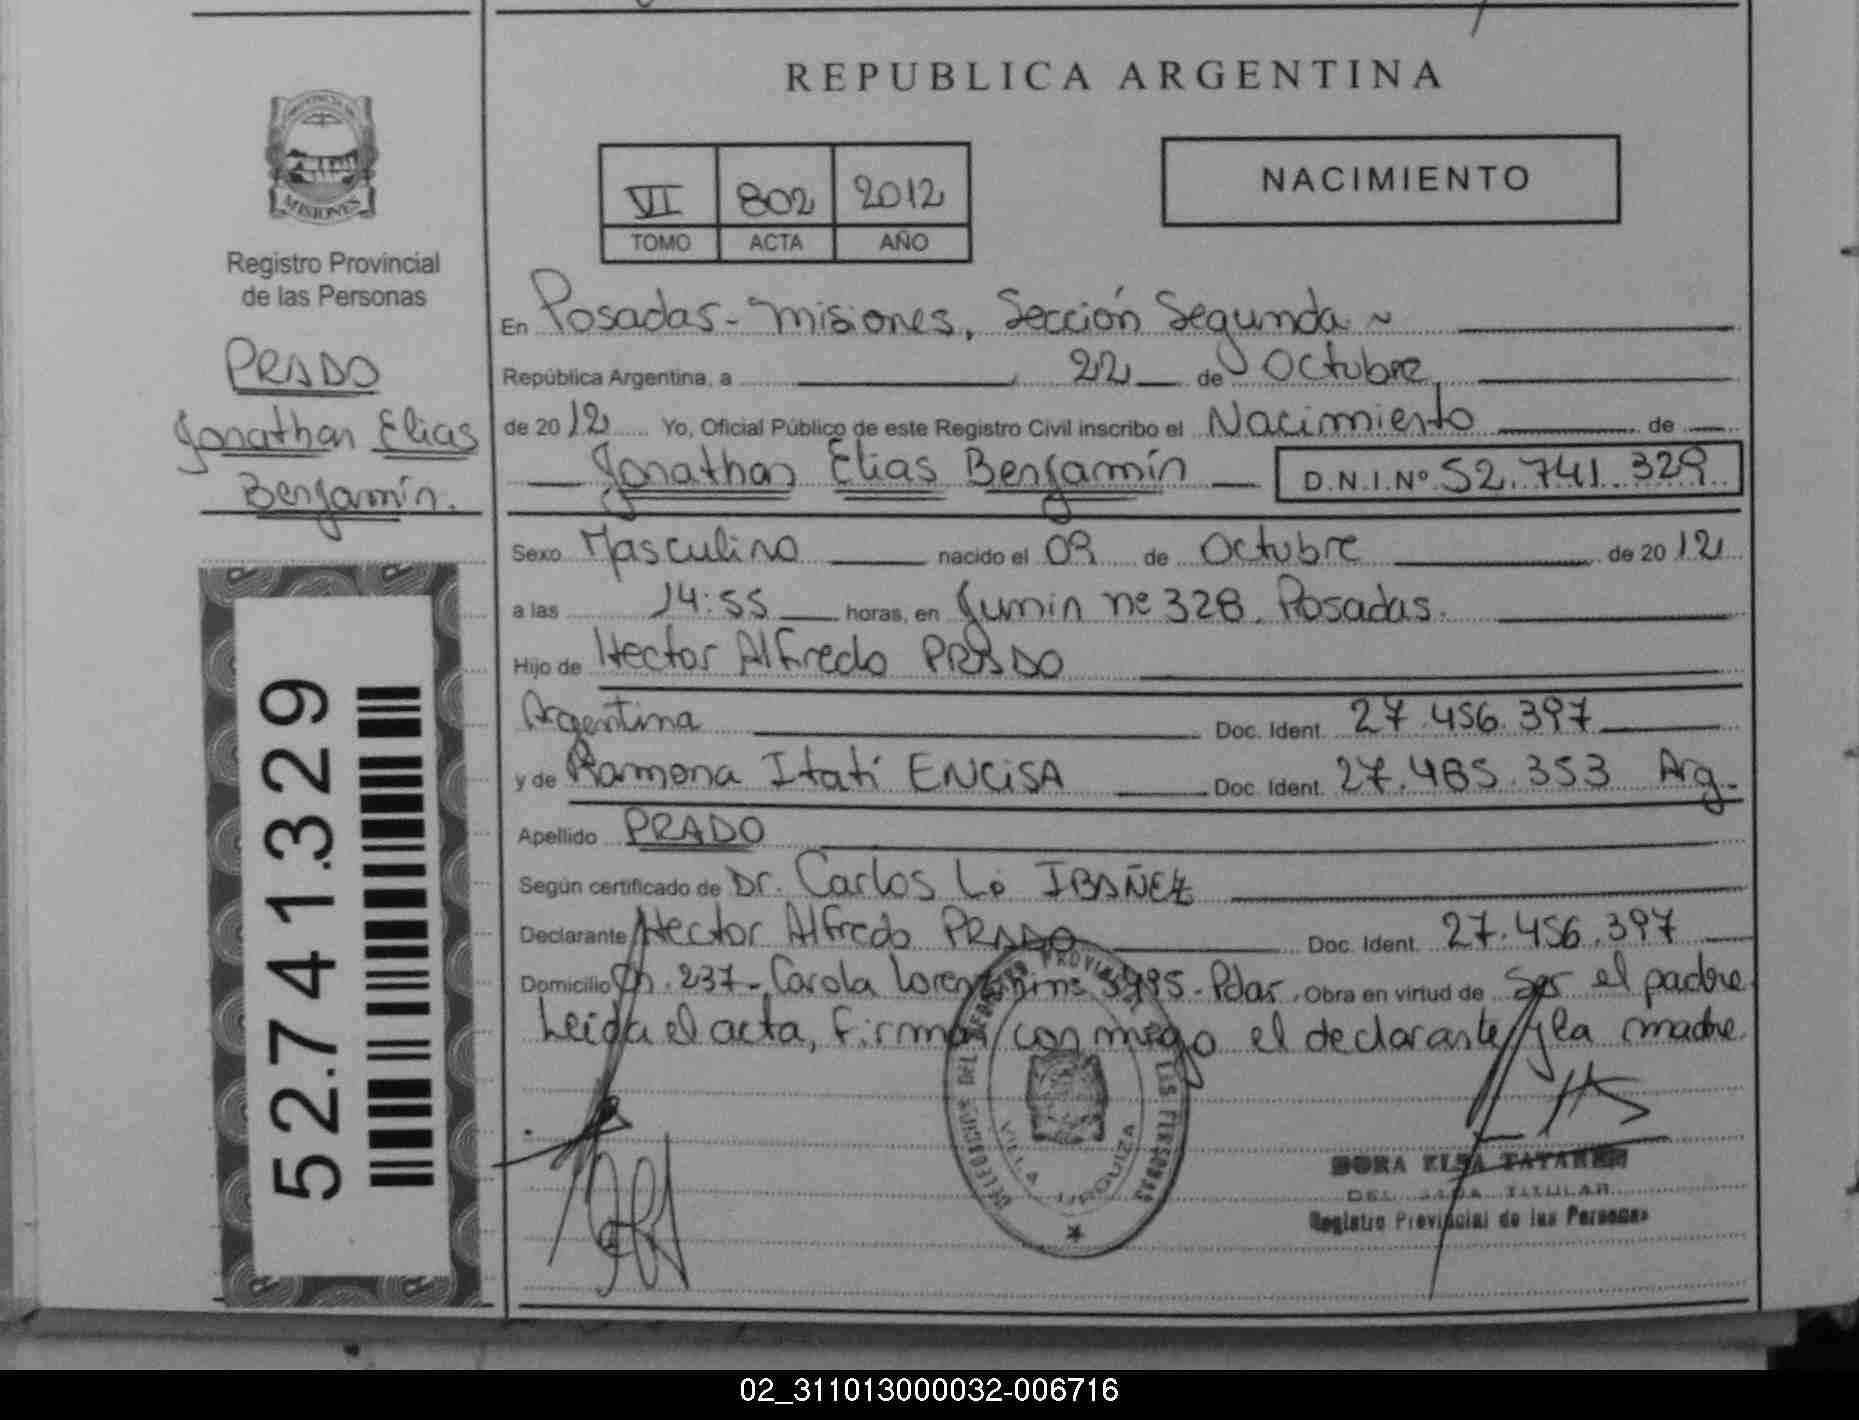 REPUBLICA ARGENTINA
PROVINCIA DE
MISIONES
Registro Provincial
de las Personas
PRADO
Jonathan Elias
Benjamín.
52.741.329
VI 802 2012
TOMO ACTA AÑO
NACIMIENTO
En Posadas - Misiones, Sección Segunda ~
República Argentina, a 22 de Octubre,
de 2012 Yo, Oficial Público de este Registro Civil inscribo el Nacimiento de
Jonathan Elias Benjamín D.N.I.Nº 52.741.329
Sexo Masculino nacido el 09 de Octubre de 2012
a las 14:55 horas, en Junin nº 328. Posadas.
Hijo de Hector Alfredo PRADO
Argentina Doc. Ident. 27.456.397
y de Ramona Itatí ENCISA Doc. Ident. 27.485.353 Arg.
Apellido PRADO
Según certificado de Dr. Carlos L. IBAÑEZ
Declarante Hector Alfredo PRADO Doc. Ident. 27.456.397
Domicilio Ch. 237 - Carola - Pdas. Obra en virtud de Ser el padre
Leida el acta, firman conmigo el declarante y la madre.
DELEGACION DEL REGISTRO PROVINCIAL DE LAS PERSONAS
VILLA URQUIZA
DORA ELSA
TITULAR
Registro Provincial de las Personas
02_311013000032-006716